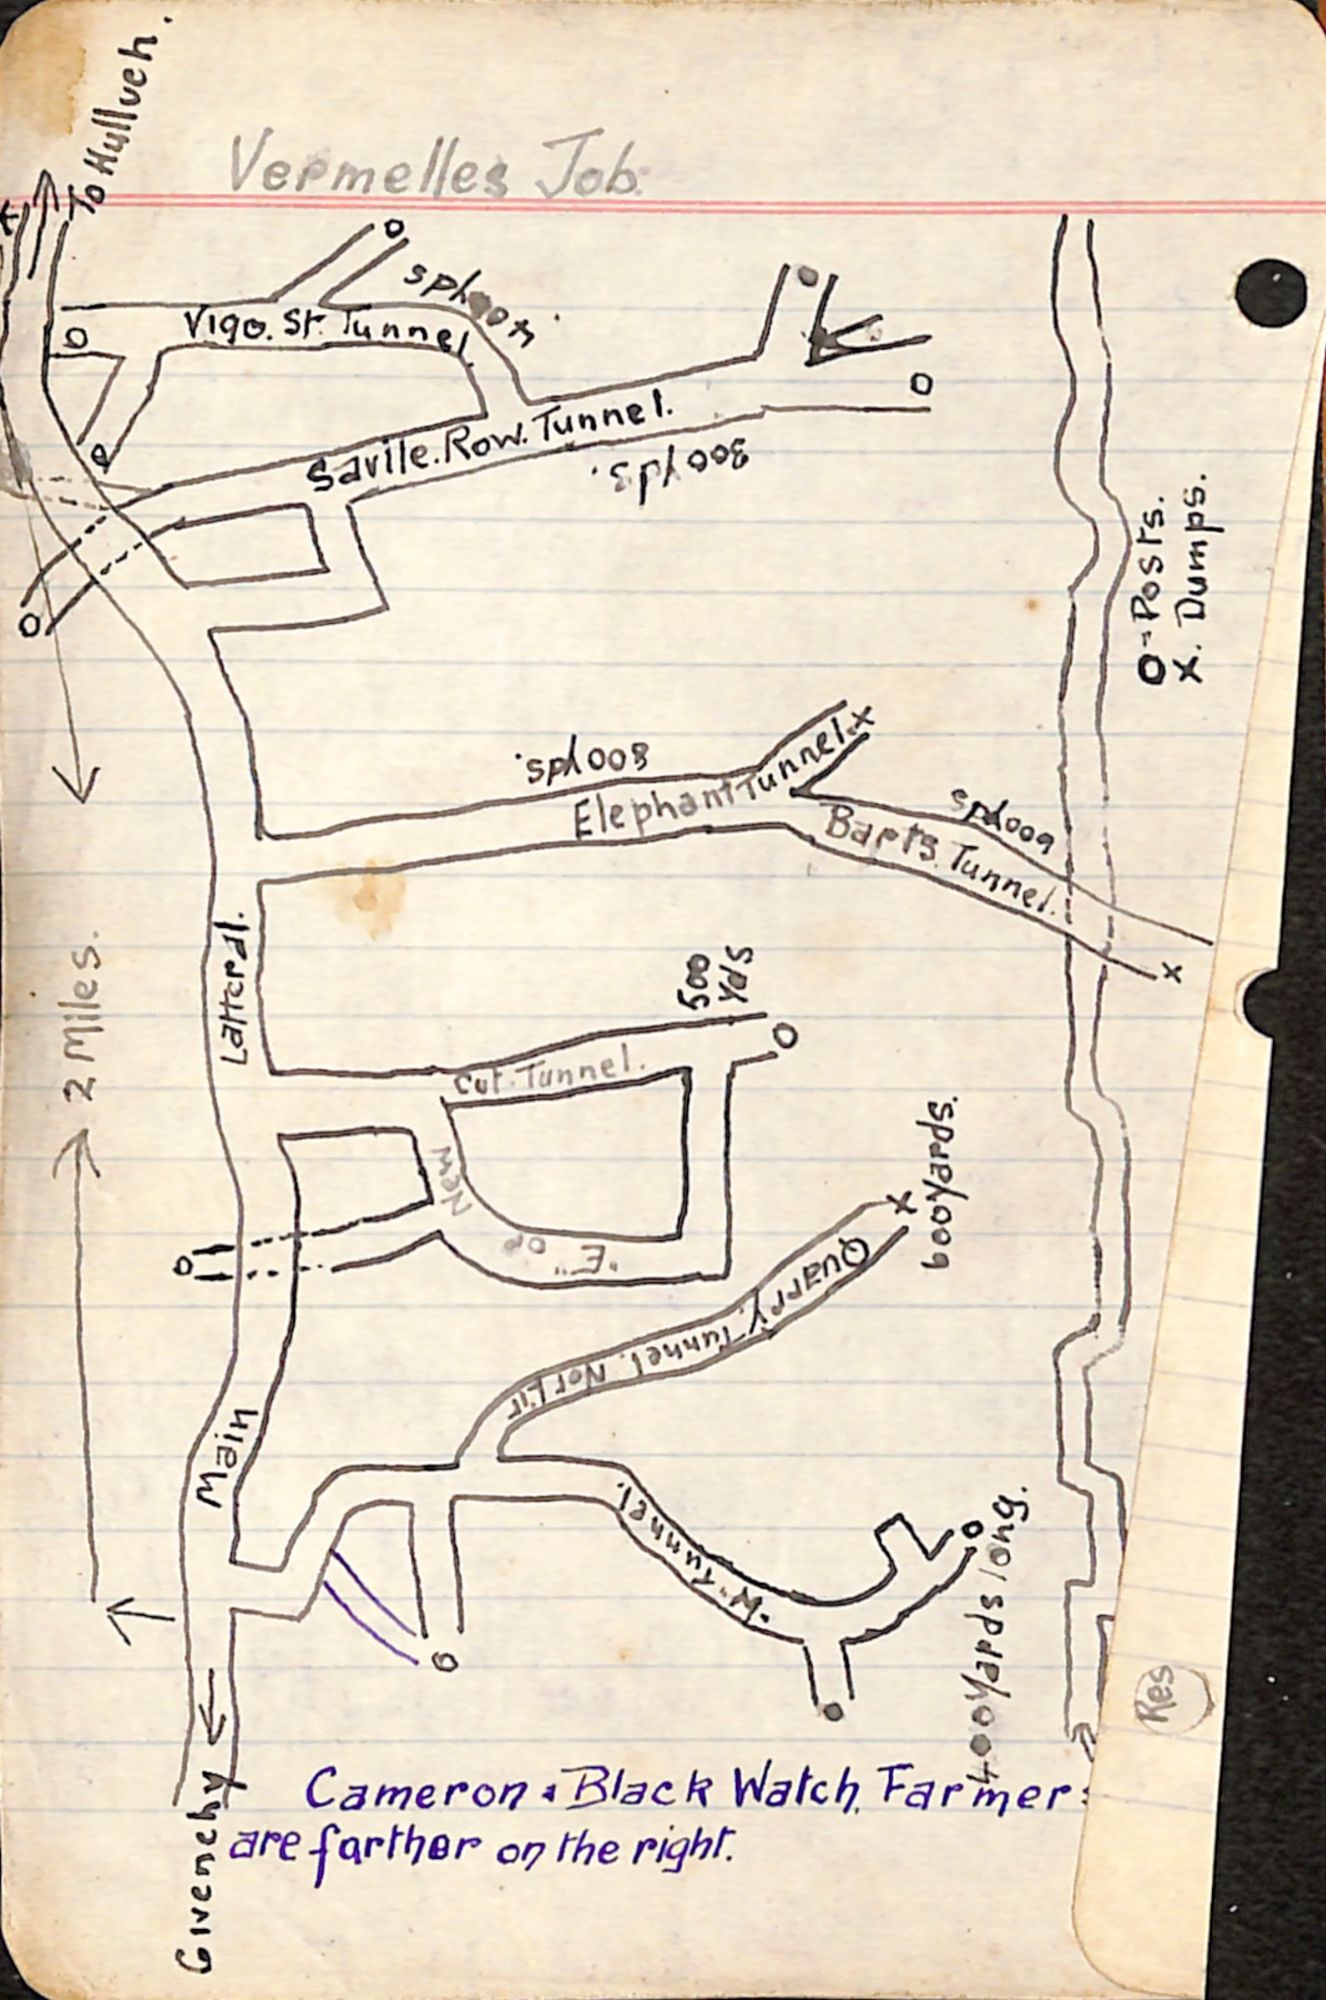 To Hulluch.
Vermelles Job.
400 yds
Vigo. St. Tunnel.
Savile. Row. Tunnel.
300 yds.
O-Posts.
X. Dumps.
800 yds.
Elephant Tunnel.
900 yds
Barts. Tunnel.
2 Miles.
Latteral.
500
yds
Cut. Tunnel.
New
"E" or
600 yards.
Quarry. Tunnel. Not Lit
Main
"W" Tunnel.
400 Yards long.
Res
Givenchy
Cameron & Black Watch. Farmer
are farther on the right.